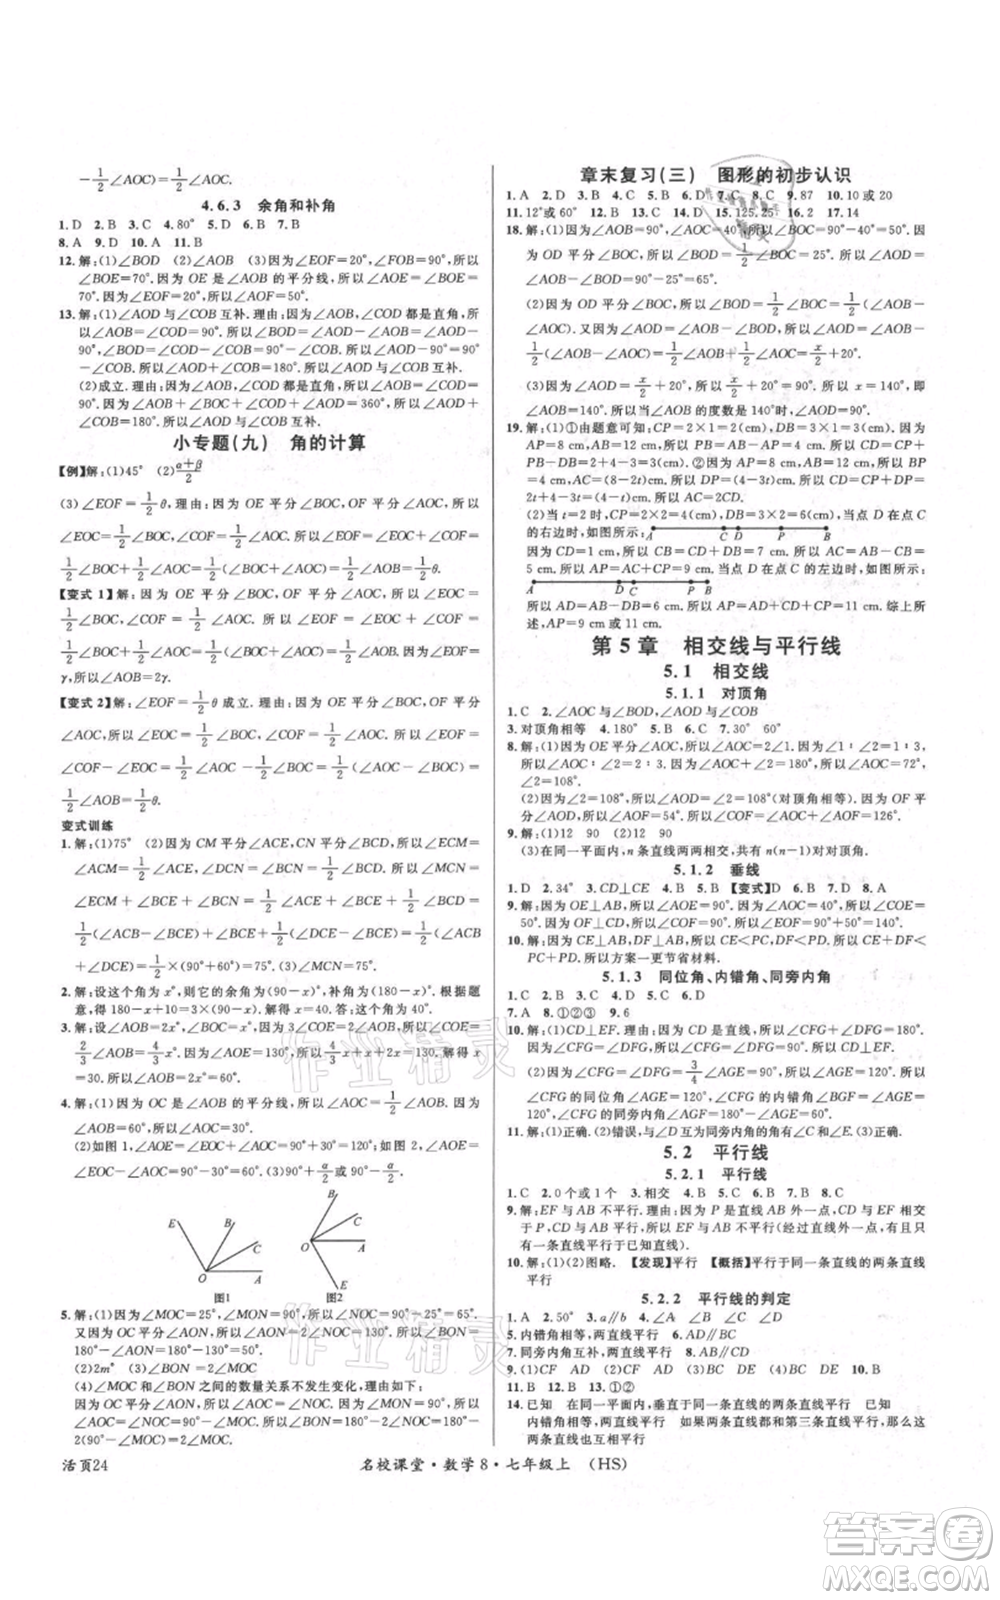 -1/2∠AOC)=1/2∠AOC.
4.6.3 余角和补角
1.D 2.B 3.C 4.80° 5.D 6.B 7.B
8.A 9.D 10.A 11.B
12.解:(1)∠BOD ∠AOE (2)因为∠EOF=20°,∠FOB=90°,所以
∠BOE=70°.因为 OE 是∠AOB 的平分线,所以∠AOE=∠BOE=
70°.因为∠EOF=20°,所以∠AOF=50°.
13.解:(1)∠AOD 与∠COB 互补.理由:因为∠AOB,∠COD 都是直角,所
以∠AOB=∠COD=90°.所以∠BOD=∠AOD-∠AOB=∠AOD-
90°,∠BOD=∠COD-∠COB=90°-∠COB.所以∠AOD-90°=
90°-∠COB.所以∠AOD+∠COB=180°.所以∠AOD 与∠COB 互补.
(2)成立.理由:因为∠AOB,∠COD 都是直角,所以∠AOB=∠COD=
90°.因为∠AOB+∠BOC+∠COD+∠AOD=360°,所以∠AOD+
∠COB=180°.所以∠AOD 与∠COB 互补.
小专题(九) 角的计算
【例】解:(1)45° (2)(α+β)/2
(3)∠EOF=1/2θ,理由:因为 OE 平分∠BOC,OF 平分∠AOC,所以
∠EOC=1/2∠BOC,∠COF=1/2∠AOC.所以∠EOF=∠EOC+∠COF=
1/2∠BOC+1/2∠AOC=1/2(∠BOC+∠AOC)=1/2∠AOB=1/2θ.
【变式 1】解:因为 OE 平分∠BOC,OF 平分∠AOC,所以∠EOC=
1/2∠BOC,∠COF=1/2∠AOC.所以∠EOF=∠EOC+∠COF=
1/2∠BOC+1/2∠AOC=1/2(∠BOC+∠AOC)=1/2∠AOB.因为∠EOF=
γ,所以∠AOB=2γ.
【变式 2】解:∠EOF=1/2θ 成立.理由:因为 OE 平分∠BOC,OF 平分
∠AOC,所以∠EOC=1/2∠BOC,∠COF=1/2∠AOC.所以∠EOF=
∠COF-∠EOC=1/2∠AOC-1/2∠BOC=1/2(∠AOC-∠BOC)=
1/2∠AOB=1/2θ.
变式训练
1.解:(1)75° (2)因为 CM 平分∠ACE,CN 平分∠BCD,所以∠ECM=
∠ACM=1/2∠ACE,∠DCN=∠BCN=1/2∠BCD.所以∠MCN=
∠ECM+∠BCE+∠BCN=1/2∠ACE+∠BCE+1/2∠BCD=
1/2(∠ACB-∠BCE)+∠BCE+1/2(∠DCE-∠BCE)=1/2(∠ACB
+∠DCE)=1/2×(90°+60°)=75°.(3)∠MCN=75°.
2.解:设这个角为 x°,则它的余角为(90-x)°,补角为(180-x)°.根据题
意得180-x+10=3(90-x).解得 x=40.答:这个角的度数为40°.
3.解:设∠AOB=2x°,因为∠AOC:∠AOB=1:2,所以∠AOC=
2/3∠AOB=4/3x°.因为∠AOE=130°,所以4/3x+x+2x=130.解得 x
=30.所以∠AOB=2x°=60°.
4.解:(1)因为 OC 是∠AOB 的平分线,所以∠AOC=1/2∠AOB.因为
∠AOB=60°,所以∠AOC=30°.
(2)如图 1,∠AOE=∠EOC+∠AOC=90°+30°=120°;如图 2,∠AOE=
∠EOC-∠AOC=90°-30°=60°.(3)90°+α/2或90°-α/2.
E B C O A 图1
B C O A E 图2
5.解:(1)因为∠MOC=25°,∠MON=90°,所以∠CON=∠MON-∠MOC=65°.
又因为 OC 平分∠AON,所以∠AON=2∠CON=130°.所以∠BON=
180°-∠AON=50°.
(2)2m° (3)∠BON=2∠MOC.
(4)∠MOC 和∠BON 之间的数量关系不发生变化,理由如下:
因为 OC 平分∠AON,所以∠AON=2∠CON.因为∠MON=90°,所以
∠CON=90°-∠MOC.所以∠BON=180°-∠AON=180°-2∠CON=180°-
2(90°-∠MOC)=2∠MOC.所以∠BON=2∠MOC.
章末复习(三) 图形的初步认识
1.A 2.D 3.B 4.C 5.B 6.D 7.D 8.C 9.87 10.10或20
11.12°或60° 12.D 13.C 14.D 15.125.25° 16.2 17.14
18.解:(1)因为∠AOB=90°,∠AOC=40°,所以∠BOC=90°-40°=50°.
因为 OD 平分∠BOC,所以∠BOD=1/2∠BOC=25°.所以∠AOD=
∠AOB-∠BOD=90°-25°=65°.
(2)因为 OD 平分∠BOC,所以∠COD=1/2∠BOC=1/2(∠AOB-
∠AOC).又因为∠AOD=∠COD+∠AOC,所以∠AOD=
1/2(∠AOB+∠AOC)=1/2x+20°.
(3)因为∠AOD=x/2+20°,所以x/2+20°=90°.所以 x=140°,即
∠AOB=140°.所以当∠AOB 的度数是140°时,∠AOD=90°.
19.解:(1)①由题意可知:CP=2×1=2(cm),DB=3×1=3(cm).因为
AP=8 cm,AB=12 cm,所以 PB=AB-AP=4 cm.所以 CD=CP+
PB-DB=2+4-3=3(cm).②因为 AP=8 cm,AB=12 cm,所以 BP=
4 cm,AC=(8-2t)cm.所以 DP=(4-3t)cm.所以 CD=CP+DP=
2t+4-3t=(4-t)cm.所以 AC=2CD.
(2)当 t=2时,CP=2×2=4(cm),DB=3×2=6(cm).当点 D 在点 C
的右边时,如图所示:
A C D P B
因为 CD=1 cm,所以 CB=CD+DB=7 cm.所以 AC=AB-CB=
5 cm.所以 AP=AC+CP=9 cm.当点 D 在点 C 的左边时,如图所示:
A D C P B
所以 AD=AB-DB=6 cm.所以 AP=AD+CD+CP=11 cm.综上所
述,AP=9 cm 或11 cm.
第 5 章 相交线与平行线
5.1 相交线
5.1.1 对顶角
1.C 2.∠AOC与∠BOD,∠AOD与∠COB
3.对顶角相等 4.180° 5.B 6.C 7.30° 60°
8.解:(1)因为 OE 平分∠BOC,所以∠BOC=2∠1.因为∠AOC:∠1=
1:2,所以∠BOC=4∠AOC.又因为∠AOC+∠2=180°,所以∠AOC=72°,
∠2=108°.
(2)因为∠2=108°,所以∠AOD=∠2=108°(对顶角相等).因为 OF 平
分∠AOD,所以∠AOF=54°.所以∠BOF=180°-∠AOF=126°.
9.解:(1)12 90 (2)12 90
(3)在同一平面内,n 条直线两两相交,共有 n(n-1)对对顶角.
5.1.2 垂线
1.D 2.34° 3.CD⊥CE 4.B 5.A 【变式】D 6.D 7.D 8.A
9.解:因为 OE⊥AB,所以∠AOE=90°.又因为∠EOF=40°,所以∠AOF=
50°.因为 OF⊥CD,所以∠COF=90°.所以∠AOC=90°+50°=140°.
10.解:因为 CE⊥AB,DF⊥AB,所以 CE<PC,DF<PD.所以 CE+DF<PC+
PD.所以方案一更节省材料.
5.1.3 同位角、内错角、同旁内角
1.B 2.B 3.B 4.C 5.C 6.D
7.A 8.①②③ 9.6
10.解:(1)CD⊥EF.理由:因为 CD 是直线,所以∠CFG+∠DFG=180°.
因为∠CFG=∠DFG,所以∠CFG=∠DFG=90°.所以 CD⊥EF.
(2)因为∠CFG=60°,∠CFG=3/4∠AGE,所以∠AGE=80°.所以
∠CFG 的同位角∠AGE=80°,∠CFG 的内错角∠BGF=∠AGE=80°,
∠CFG 的同旁内角∠AGF=180°-∠AGE=100°.
11.解:(1)正确.(2)错误,与∠B 互为同旁内角的角有∠C 和∠A.
5.2 平行线
5.2.1 平行线
1.C 2.0 个或 1 个 3.相交 4.B 5.B 6.C 7.B 8.B
9.解:EF 与 AB 不平行.理由:因为 P 是直线 AB 外一点,CD 与 EF 相交
于 P,CD∥AB,所以 EF 与 AB 不平行(经过直线外一点,有且只有
一条直线平行于已知直线).
10.解:(1)(2)图略.【发现】平行 【概括】平行于同一条直线的两条直线
平行
5.2.2 平行线的判定
1.A 2.50° 3.a∥b 4.B ∠D ∠C
5.内错角相等,两直线平行 6.AD∥BC
7.同旁内角互补,两直线平行 8.D
9.(1)CF AD (2)CF AD (3)BC DE (4)BC DE 10.B
11.B 12.B 13.①②
14.已知 内错角相等,两直线平行 垂直于同一条直线的两直线平行 已知
内错角相等,两直线平行 如果两条直线都和第三条直线平行,那么这
两条直线也互相平行
活页24
名校课堂·数学8·七年级上 (HS)
作业精灵
作业精灵
答案卷
MXQE.COM